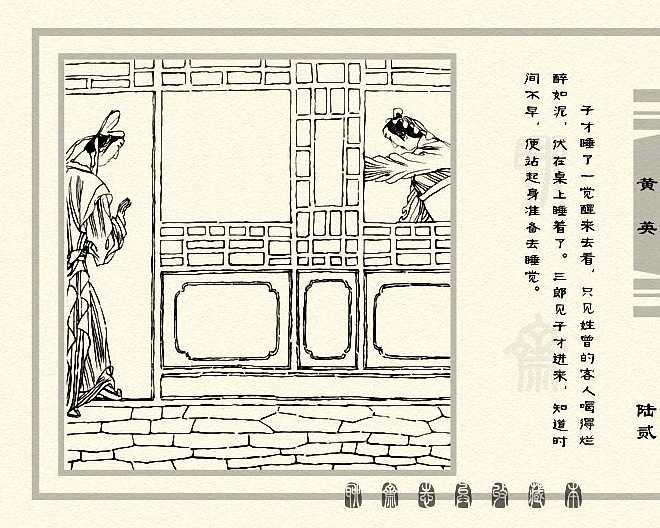 子才睡了一觉醒来去看，只见姓曾的客人喝得烂
醉如泥，伏在桌上睡着了。三郎见子才进来，知道时
间不早，便站起身准备去睡觉。
黄英
陆贰